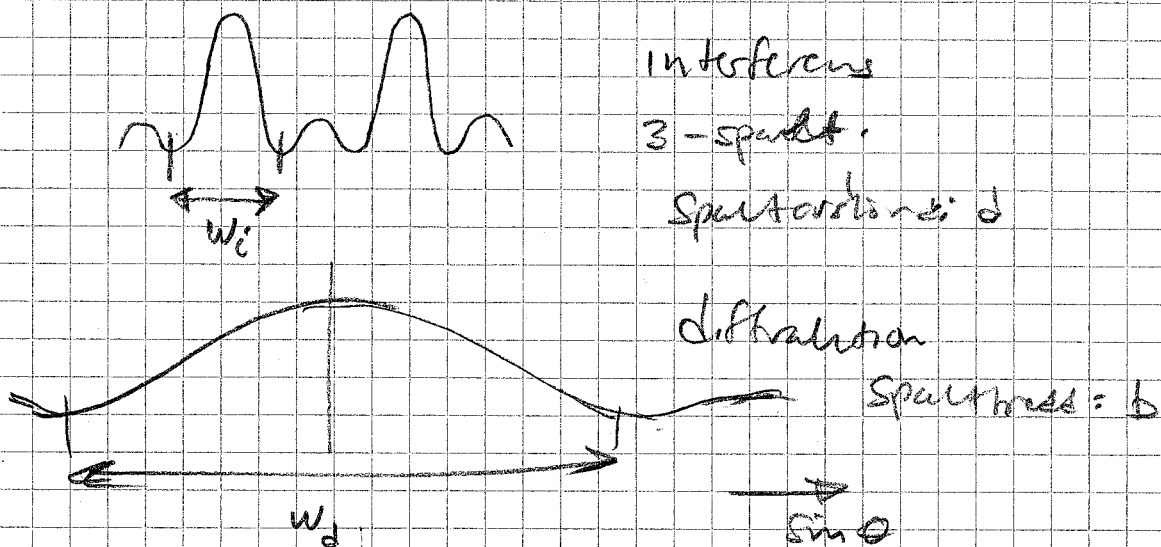 Interferens
3-spalt.
Spaltavstånd: d
w_i
diffraktion
Spaltbredd: b
w_d
sin θ